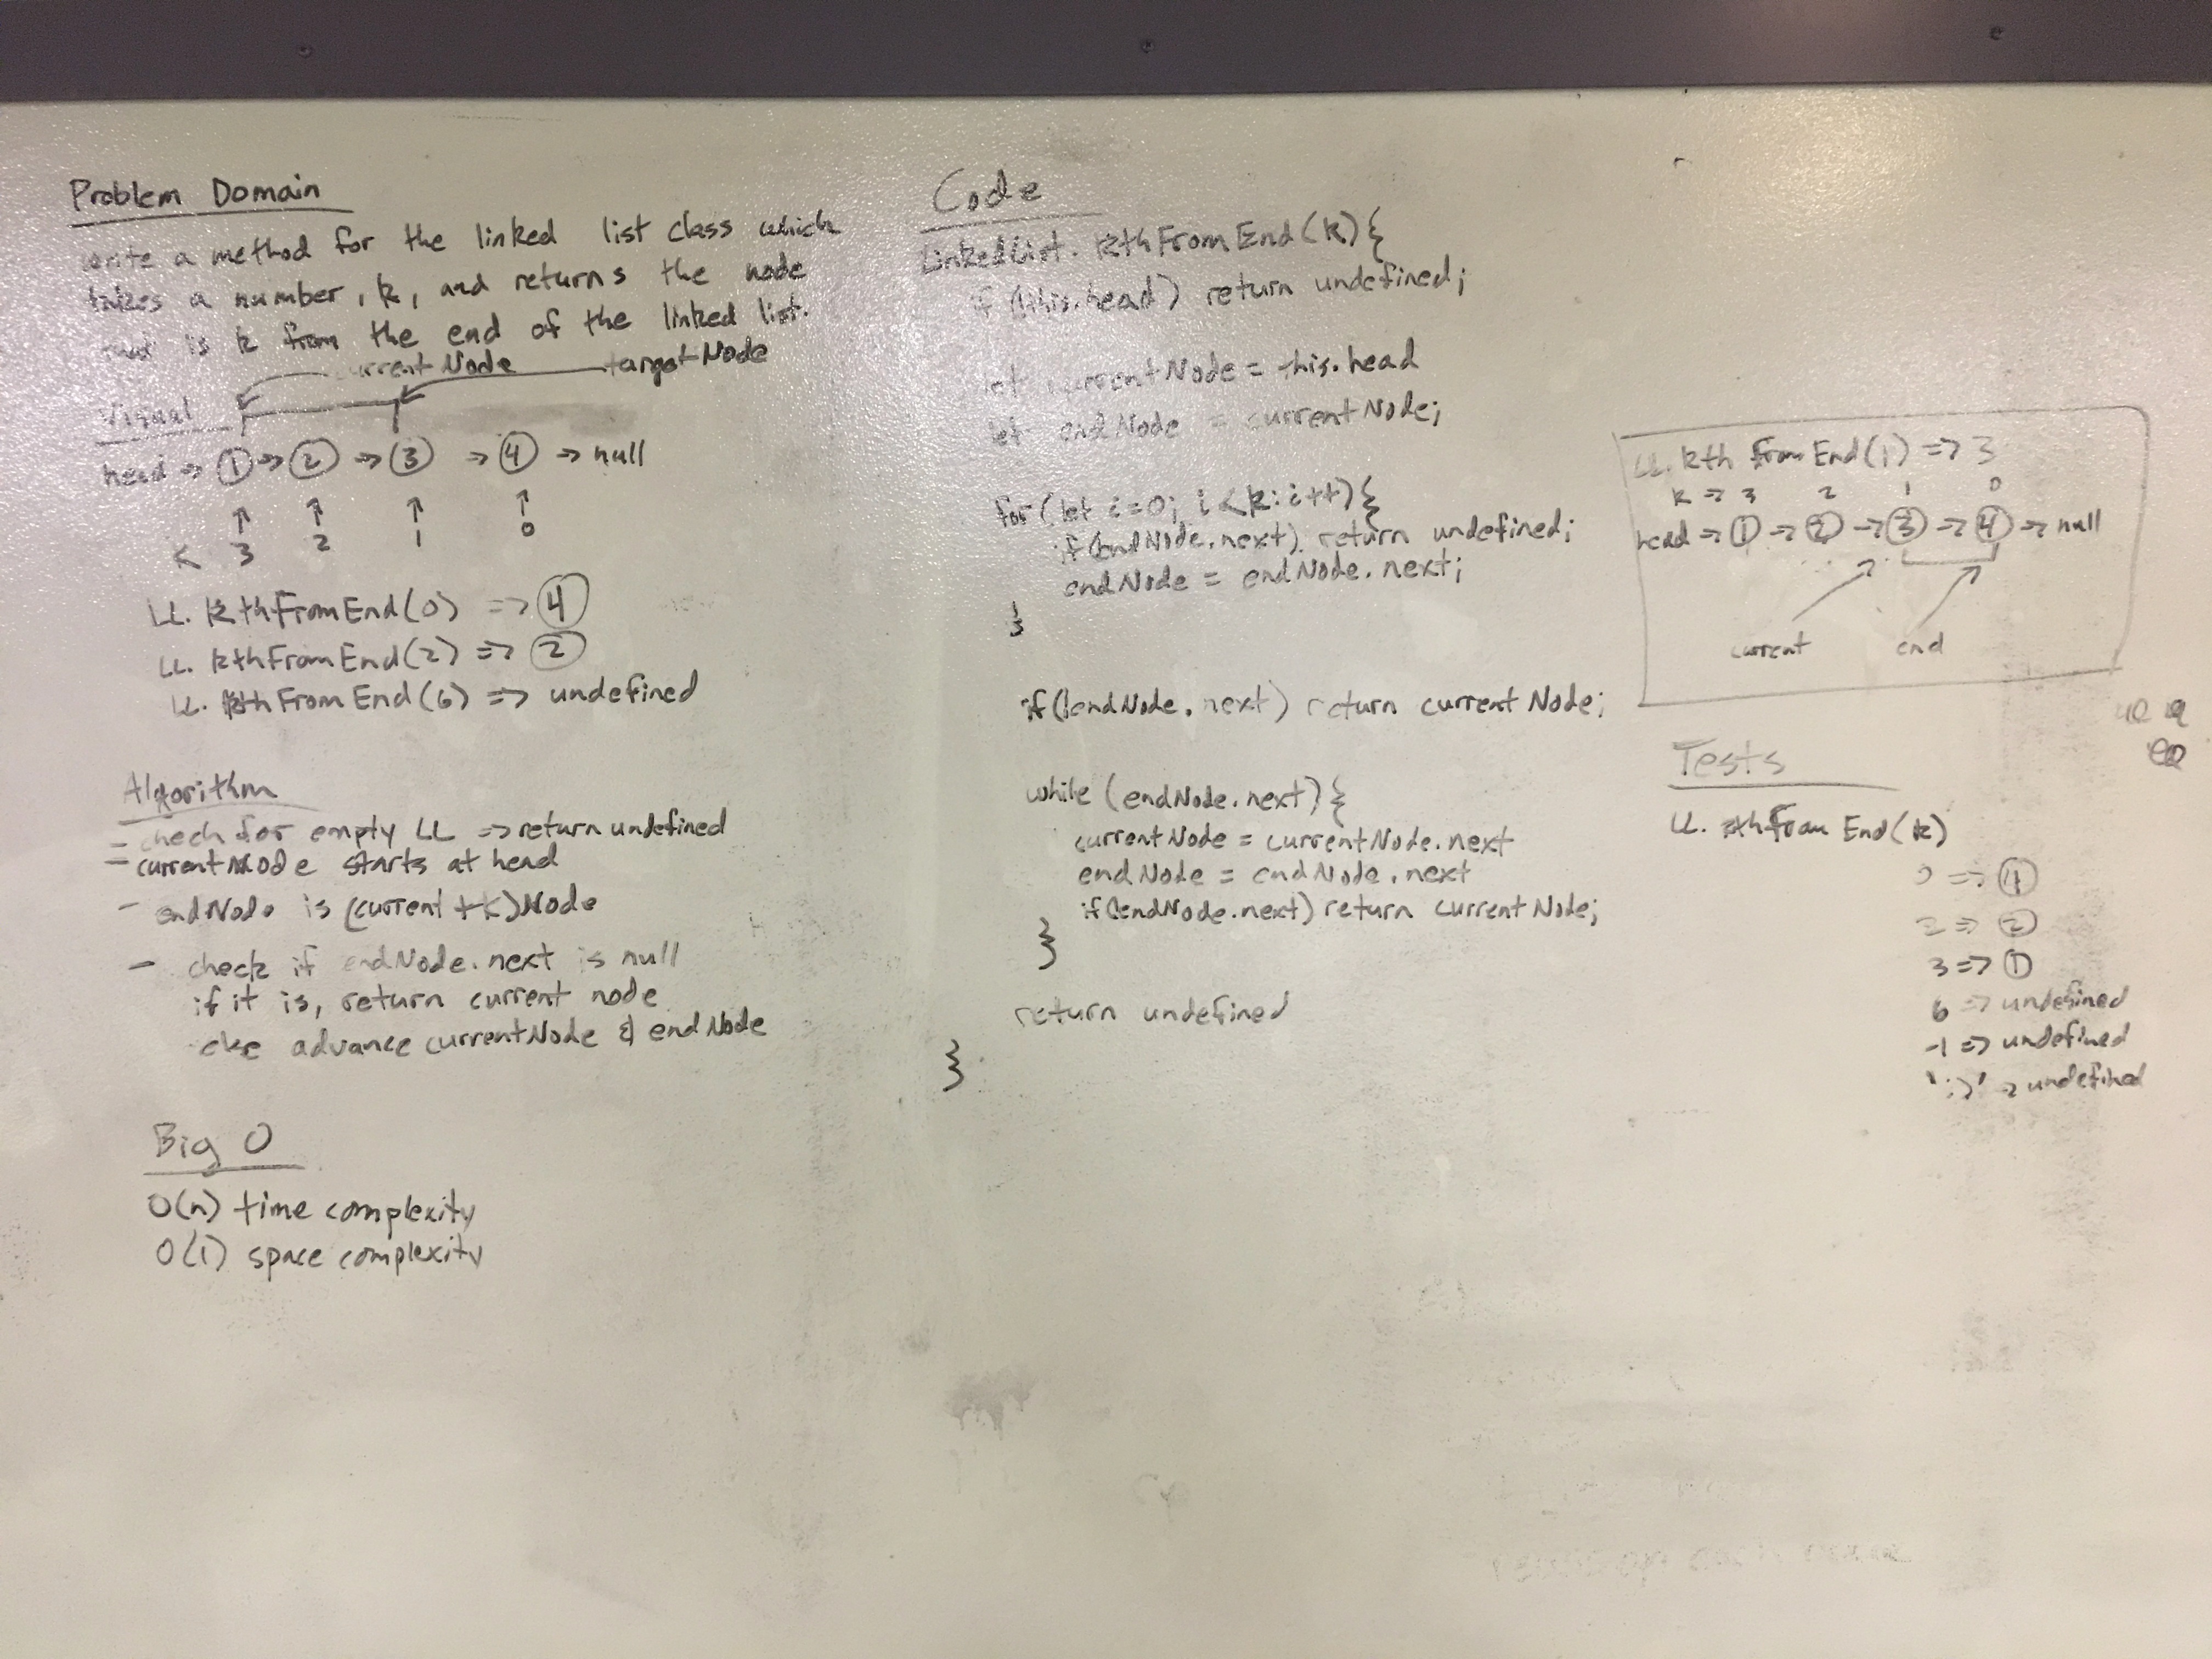 Problem Domain
write a method for the linked list class which
takes a number, k, and returns the node
that is k from the end of the linked list.
currentNode targetNode
Visual
head => 1 => 2 => 3 => 4 => null
↑ ↑ ↑ ↑
K 3 2 1 0
LL.kthFromEnd(0) => 4
LL.kthFromEnd(2) => 2
LL.kthFromEnd(6) => undefined
Algorithm
- check for empty LL => return undefined
- currentNode starts at head
- endNode is (current + K)Node
- check if endNode.next is null
if it is, return current node
else advance currentNode & endNode
Big O
O(n) time complexity
O(1) space complexity
Code
LinkedList.kthFromEnd(k){
if(!this.head) return undefined;
let currentNode = this.head
let endNode = currentNode;
for(let i=0; i<k: i++){
if(!endNode.next) return undefined;
endNode = endNode.next;
}
if(!endNode.next) return currentNode;
while (endNode.next){
currentNode = currentNode.next
endNode = endNode.next
if(!endNode.next) return currentNode;
}
return undefined
}
LL.kth From End(1) => 3
k => 3 2 1 0
head => 1 => 2 => 3 => 4 => null
current end
Tests
LL.kthFrom End(k)
0 => 4
2 => 2
3 => 1
6 => undefined
-1 => undefined
':)' => undefined